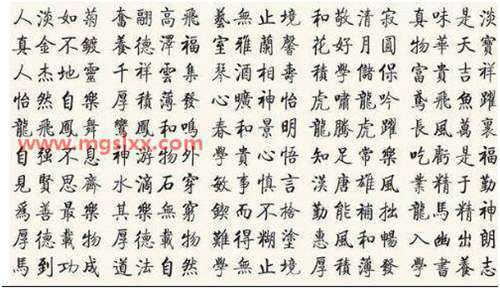 人淡如菊 奮翮高飛 藝無止境 和敬清寂 真味是淡
真金不鍍 養德澤福 室雅蘭馨 花好月圓 物華天寶
人杰地靈 千祥雲集 琴酒相壽 學儲保 富貴吉祥
怡然自樂 厚積薄發 心曠神怡 虎嘯龍吟 鳶飛魚躍
龍飛鳳舞 鸞鳳和鳴 春和景明 龍騰虎躍 長風萬裏
www.mgsixx.com
自強不息 神游物外 學貴心悟 知足常樂 吃虧是福
見賢思齊 水滴石穿 敏事慎言 漢唐雄風 業精于勤
爲善最樂 其樂無窮 鍥而不捨 勤能補拙 龍馬精神
厚德載物 厚德載物 難得糊塗 惠風和暢 入幽出朗
馬到功成 道法自然 學無止境 厚積薄發 學書養志